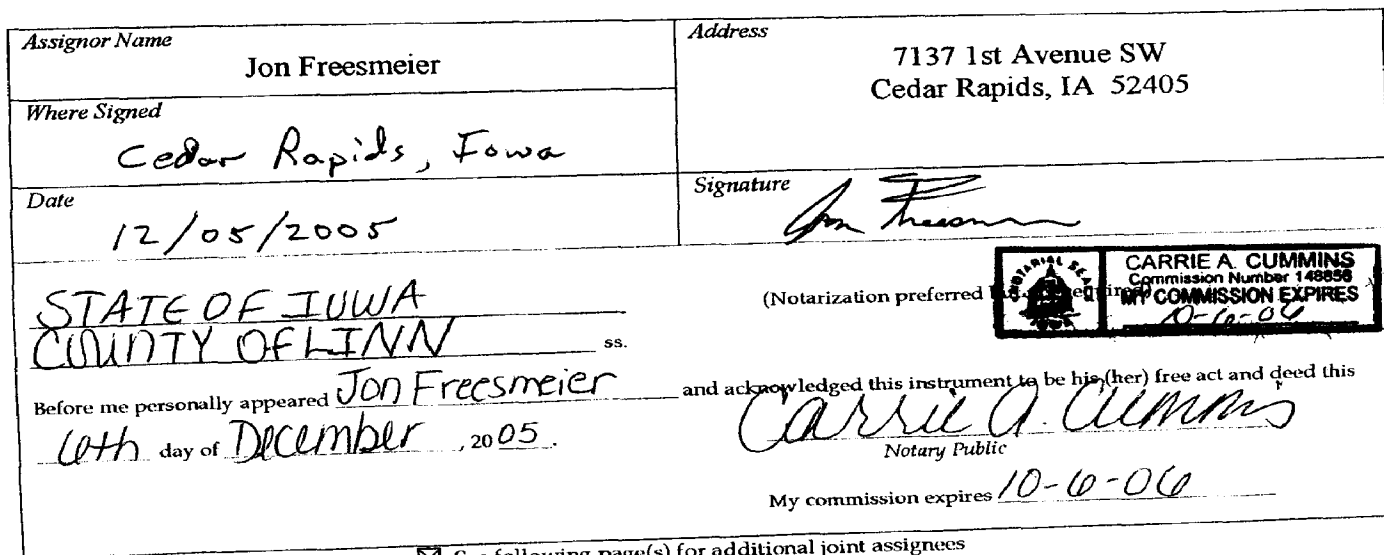 Assignor Name
Jon Freesmeier
Address
7137 1st Avenue SW
Cedar Rapids, IA 52405
Where Signed
Cedar Rapids, Iowa
Date
12/05/2005
Signature
STATE OF IOWA
COUNTY OF LINN ss.
(Notarization preferred
NOTARIAL SEAL
IOWA
CARRIE A. CUMMINS
Commission Number 148856
MY COMMISSION EXPIRES
10-6-06
Before me personally appeared Jon Freesmeier and acknowledged this instrument to be his (her) free act and deed this
6th day of December, 2005.
Carrie A. Cummins
Notary Public
My commission expires 10-6-06
following page(s) for additional joint assignees